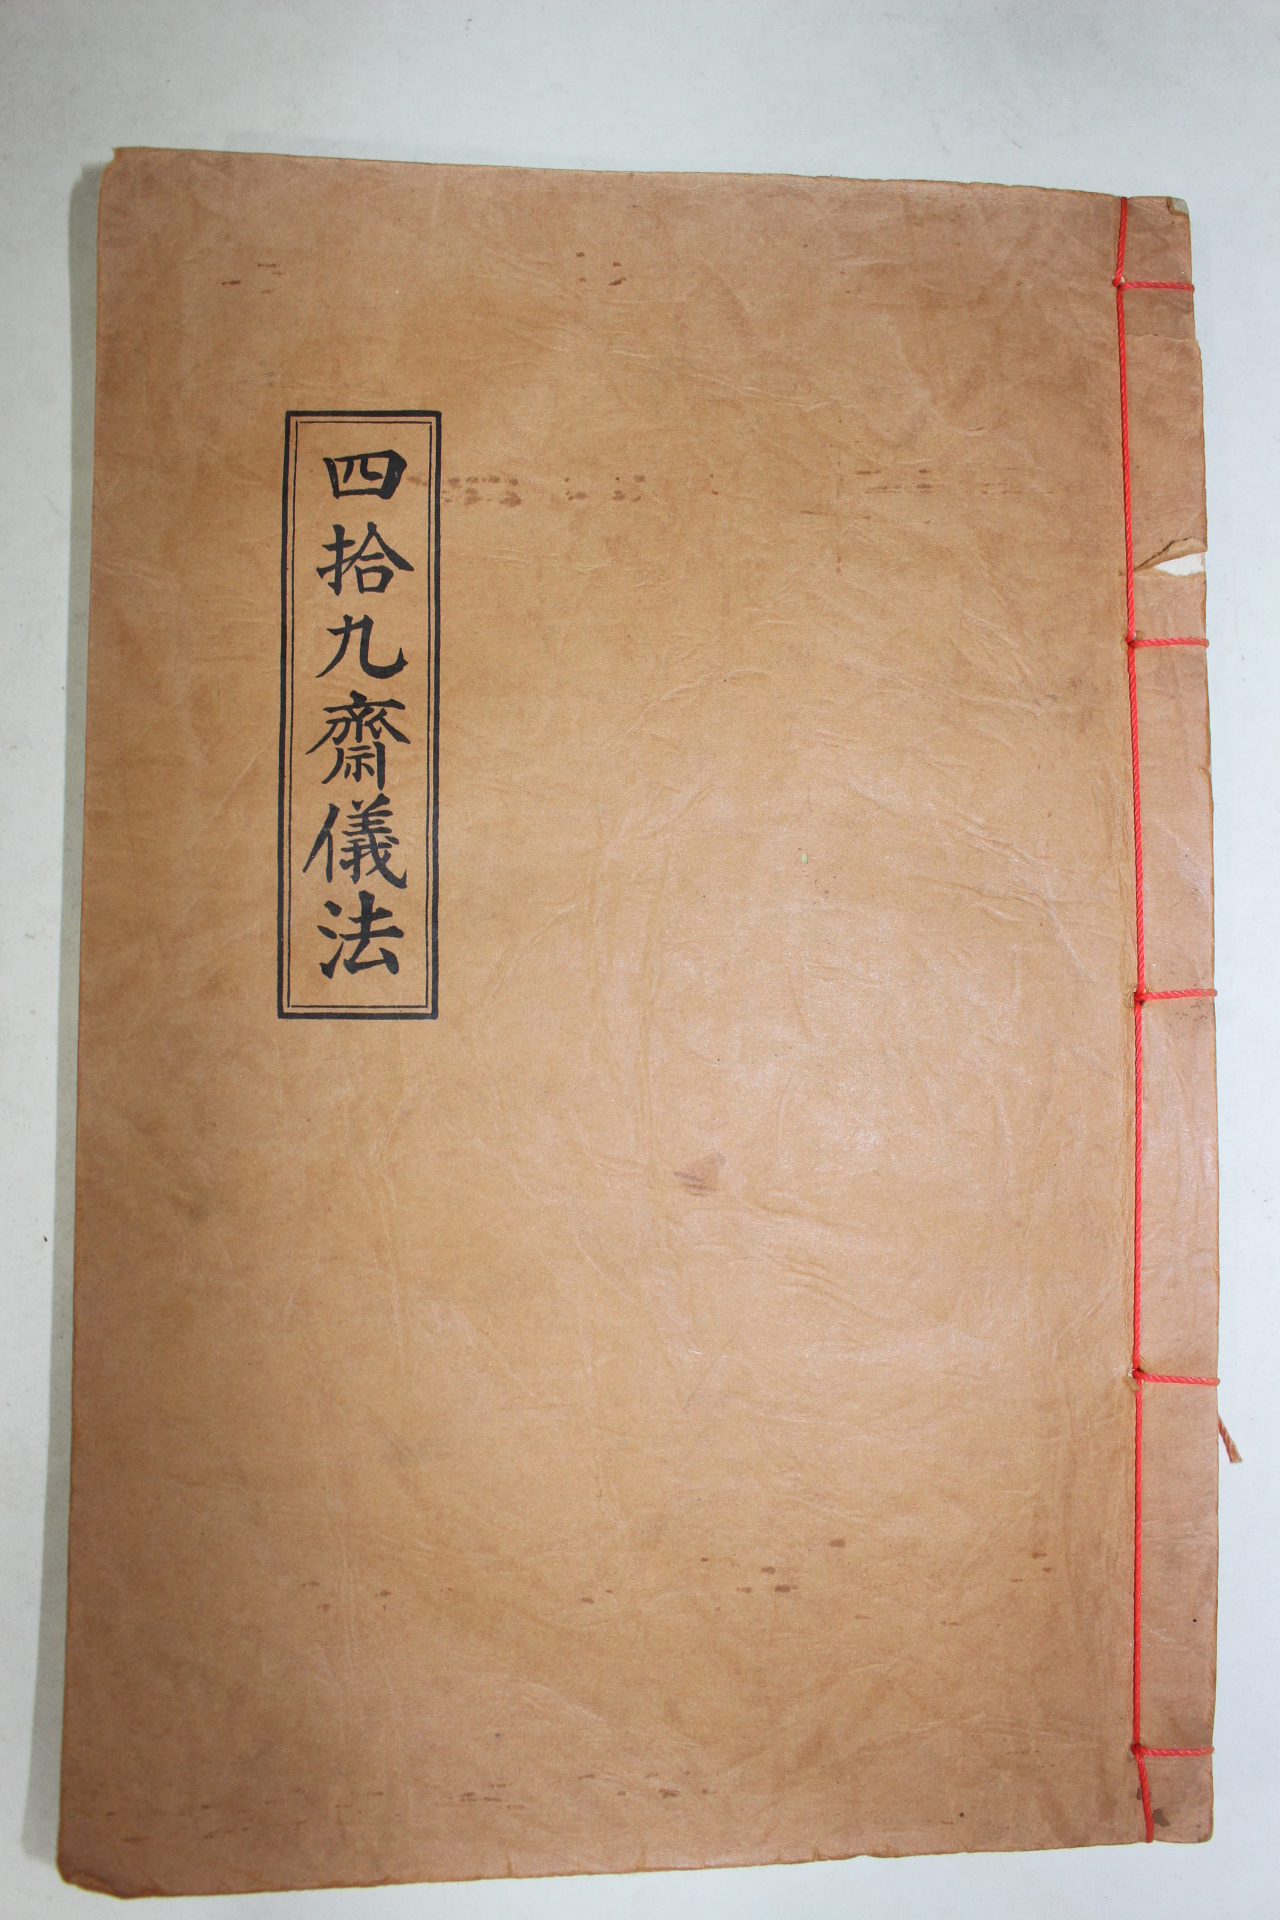 四拾九齋儀法